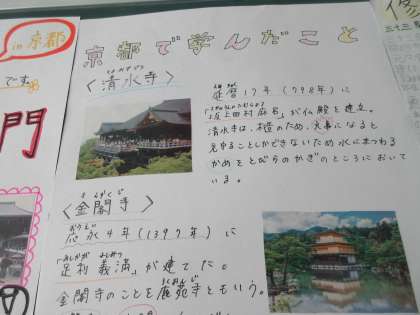 in 京都
です。
門
京都で学んだこと
〈清水寺〉
延暦17年(798年)に
「坂上田村麻呂」が仏殿を建立。
清水寺は、木造のため、火事になると
見守ることができないため水にまつわる
かめをとびらのかぎのところにおいて
いる。
きんかくじ
〈金閣寺〉
おうえい
応永4年(1397年)に
あしかが よしみつ
「足利義満」が建てた。
ろくおんじ
金閣寺のことを鹿苑寺ともいう。